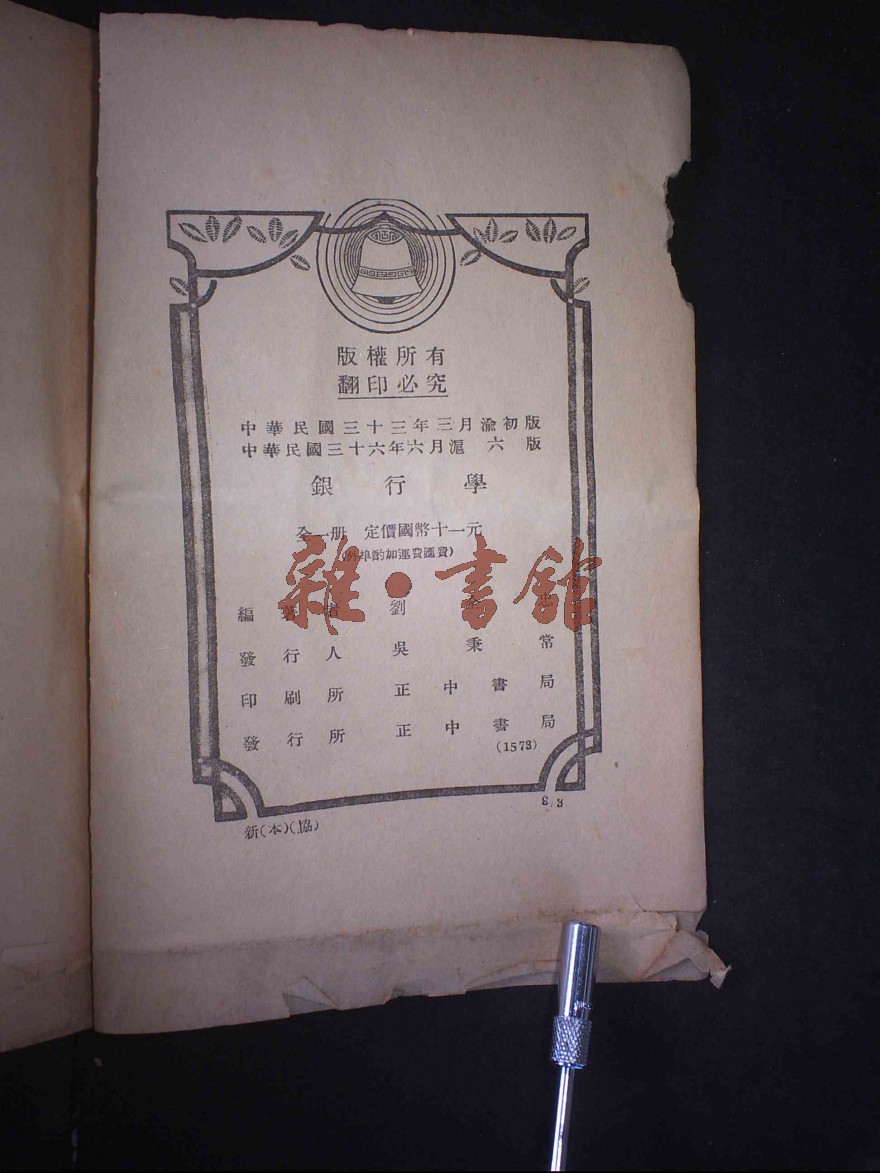 版權所有
翻印必究
中華民國三十三年三月渝初版
中華民國三十六年六月滬六版
銀行學
全一册 定價國幣十一元
(外埠酌加運費匯費)
雜·書館
編著者 劉
發行人 吳秉常
印刷所 正中書局
發行所 正中書局
(1573)
8/3
新(本)(協)